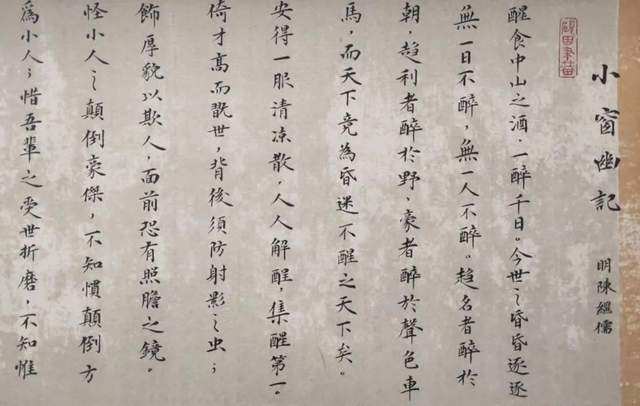 小窗幽記
明陳繼儒
醒食中山之酒，一醉千日。今世之昏昏逐逐
無一日不醉，無一人不醉。趨名者醉於
朝，趨利者醉於野，豪者醉於聲色車
馬，而天下竟為昏迷不醒之天下矣。
安得一服清凉散，人人解醒，集醒第一。
倚才高而翫世，背後須防射影之虫；
飾厚貌以欺人，面前恐有照膽之鏡。
怪小人之顛倒豪傑，不知慣顛倒方
爲小人；惜吾輩之受世折磨，不知惟